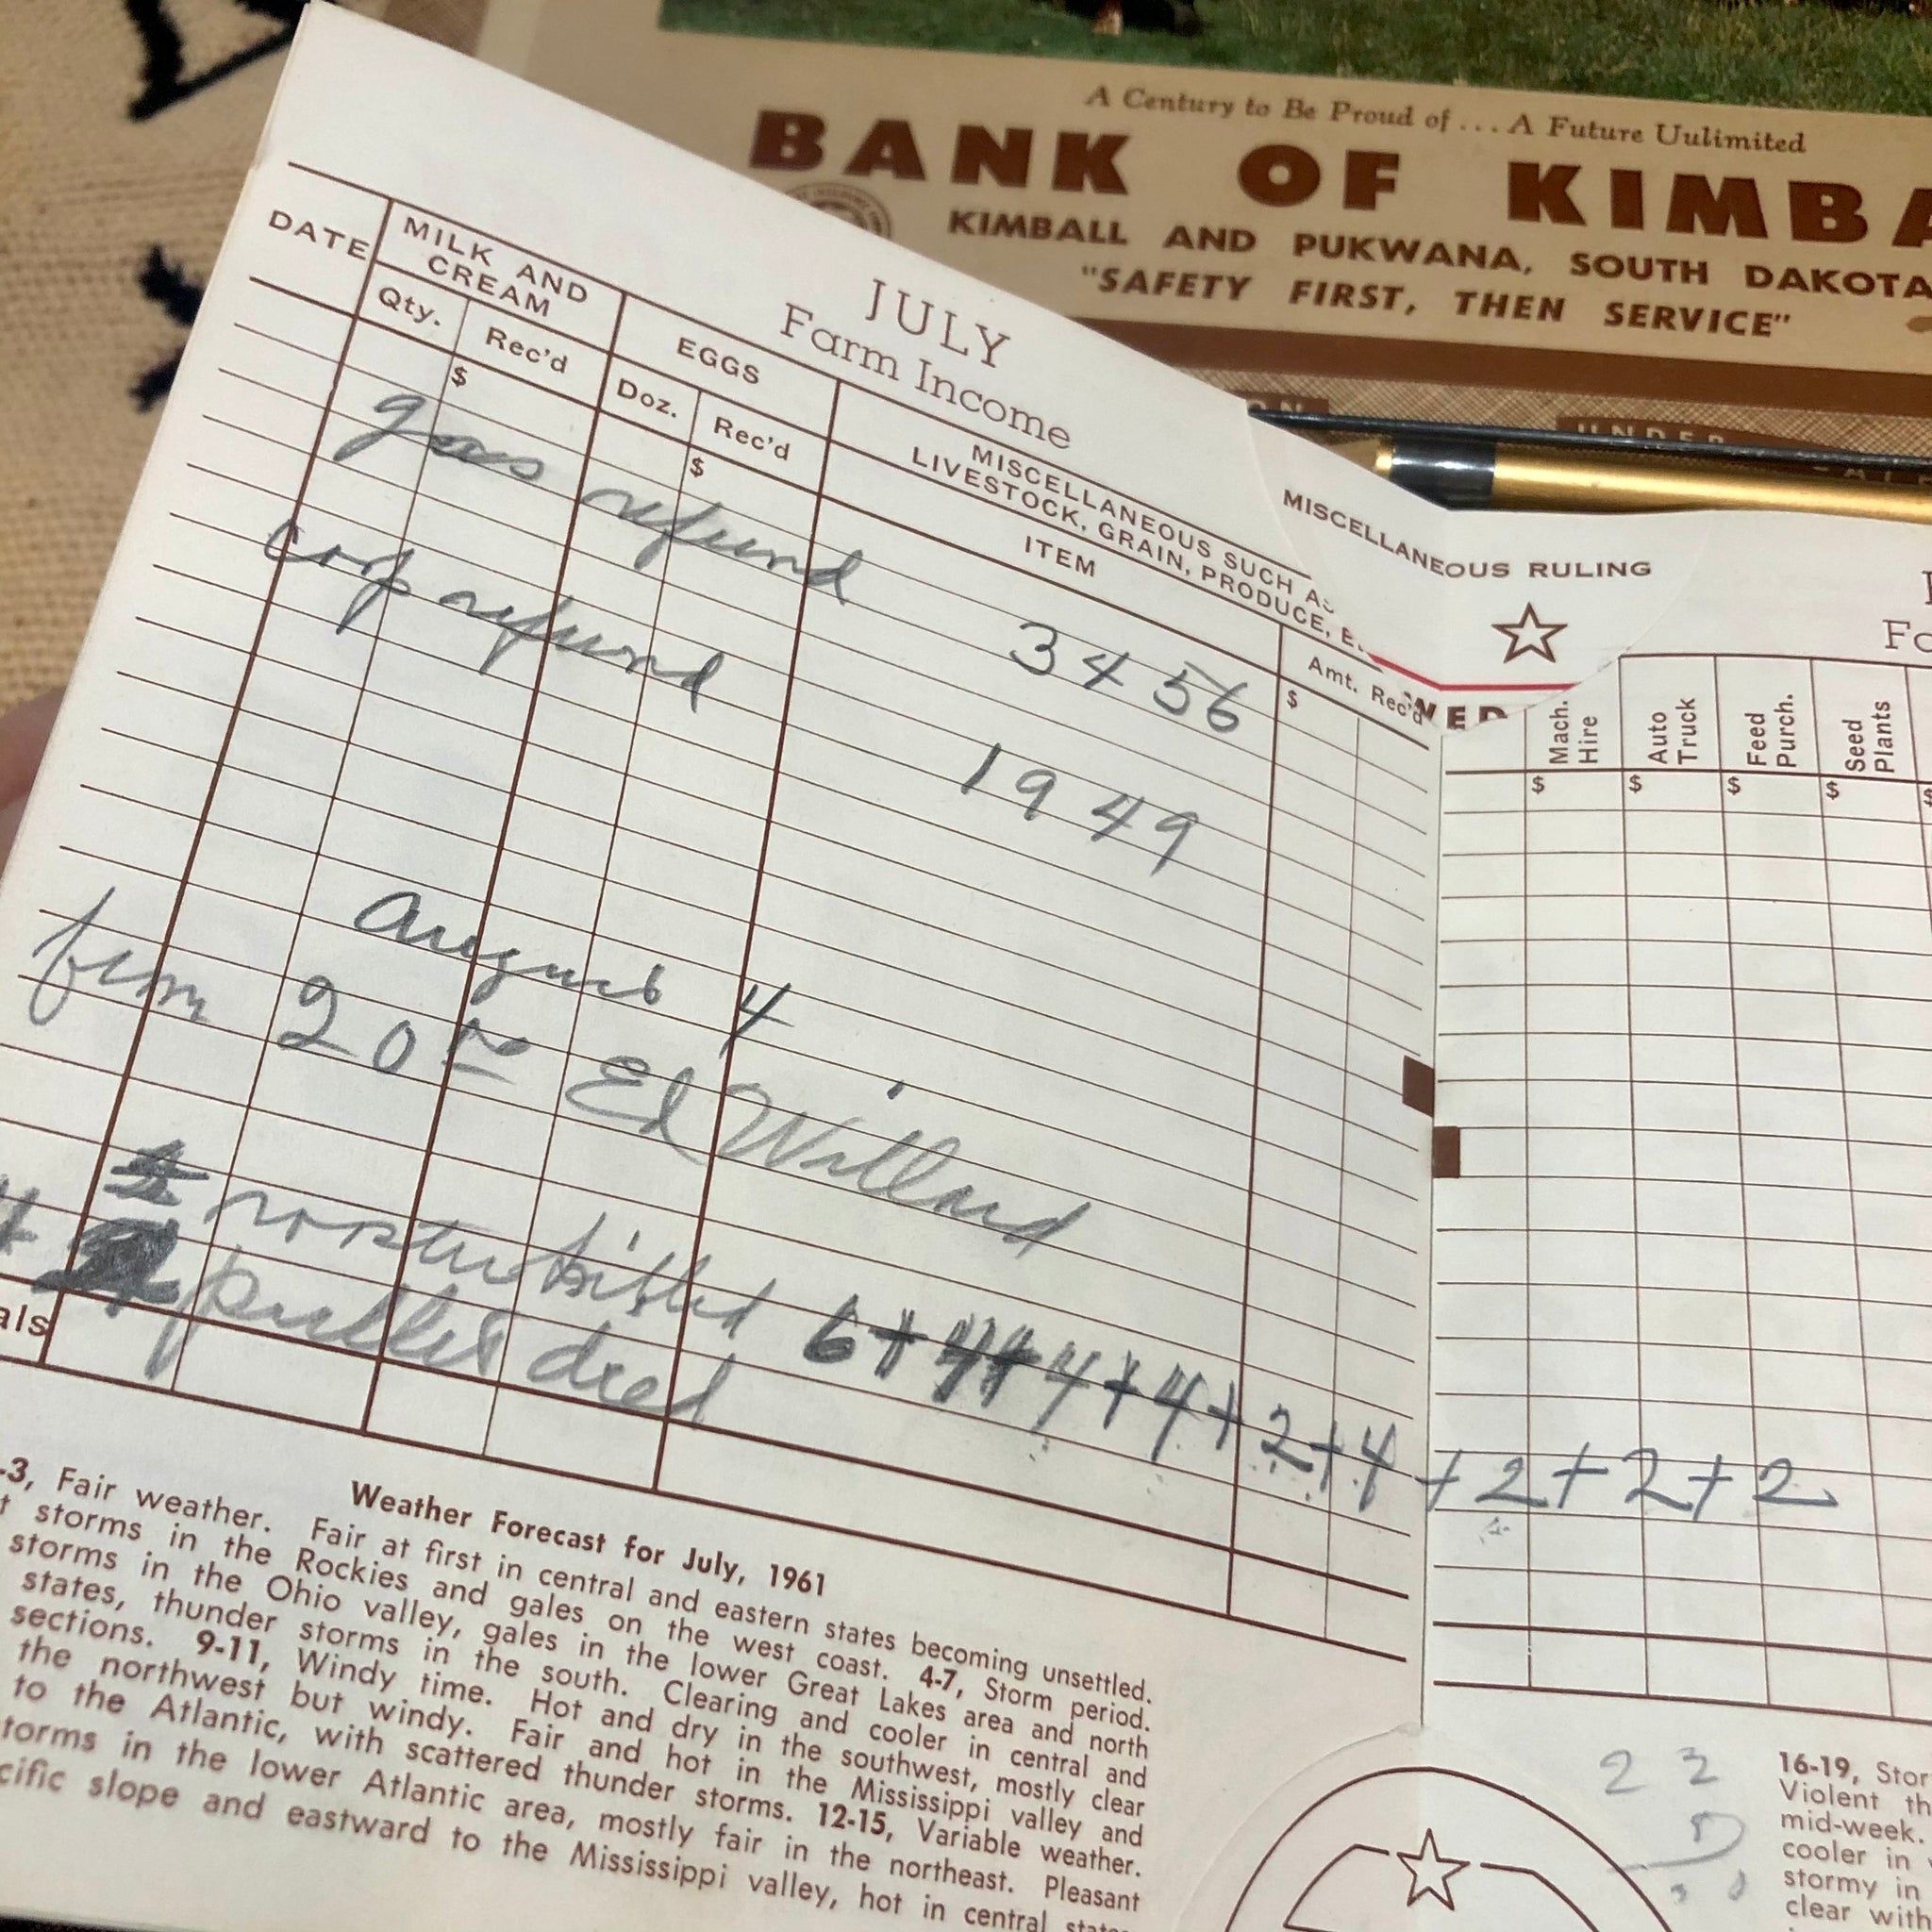 A Century to Be Proud of . . . A Future Uulimited
BANK OF KIMBA
KIMBALL AND PUKWANA, SOUTH DAKOTA
"SAFETY FIRST, THEN SERVICE"
UNDER
JULY
Farm Income
DATE
MILK AND CREAM
Qty.
Rec'd
$
EGGS
Doz.
Rec'd
$
MISCELLANEOUS SUCH AS
LIVESTOCK, GRAIN, PRODUCE, E
ITEM
Amt. Rec'd
$
gas refund 34 56
cop refund 19 49
August 4
from 20 Ed Willard
rooster killed 6 + 4 + 4 + 4 + 2 + 4 + 2 + 2 + 2
4 pullet died
als
Weather Forecast for July, 1961
-3, Fair weather. Fair at first in central and eastern states becoming unsettled.
storms in the Rockies and gales on the west coast. 4-7, Storm period.
storms in the Ohio valley, gales in the lower Great Lakes area and north
states, thunder storms in the south. Clearing and cooler in central and
sections. 9-11, Windy time. Hot and dry in the southwest, mostly clear
the northwest but windy. Fair and hot in the Mississippi valley and
to the Atlantic, with scattered thunder storms. 12-15, Variable weather.
torms in the lower Atlantic area, mostly fair in the northeast. Pleasant
cific slope and eastward to the Mississippi valley, hot in central states
MISCELLANEOUS RULING
Fa
Mach. Hire
Auto Truck
Feed Purch.
Seed Plants
$ $ $ $ $
22
16-19, Stor
Violent th
mid-week.
cooler in
stormy in
clear with